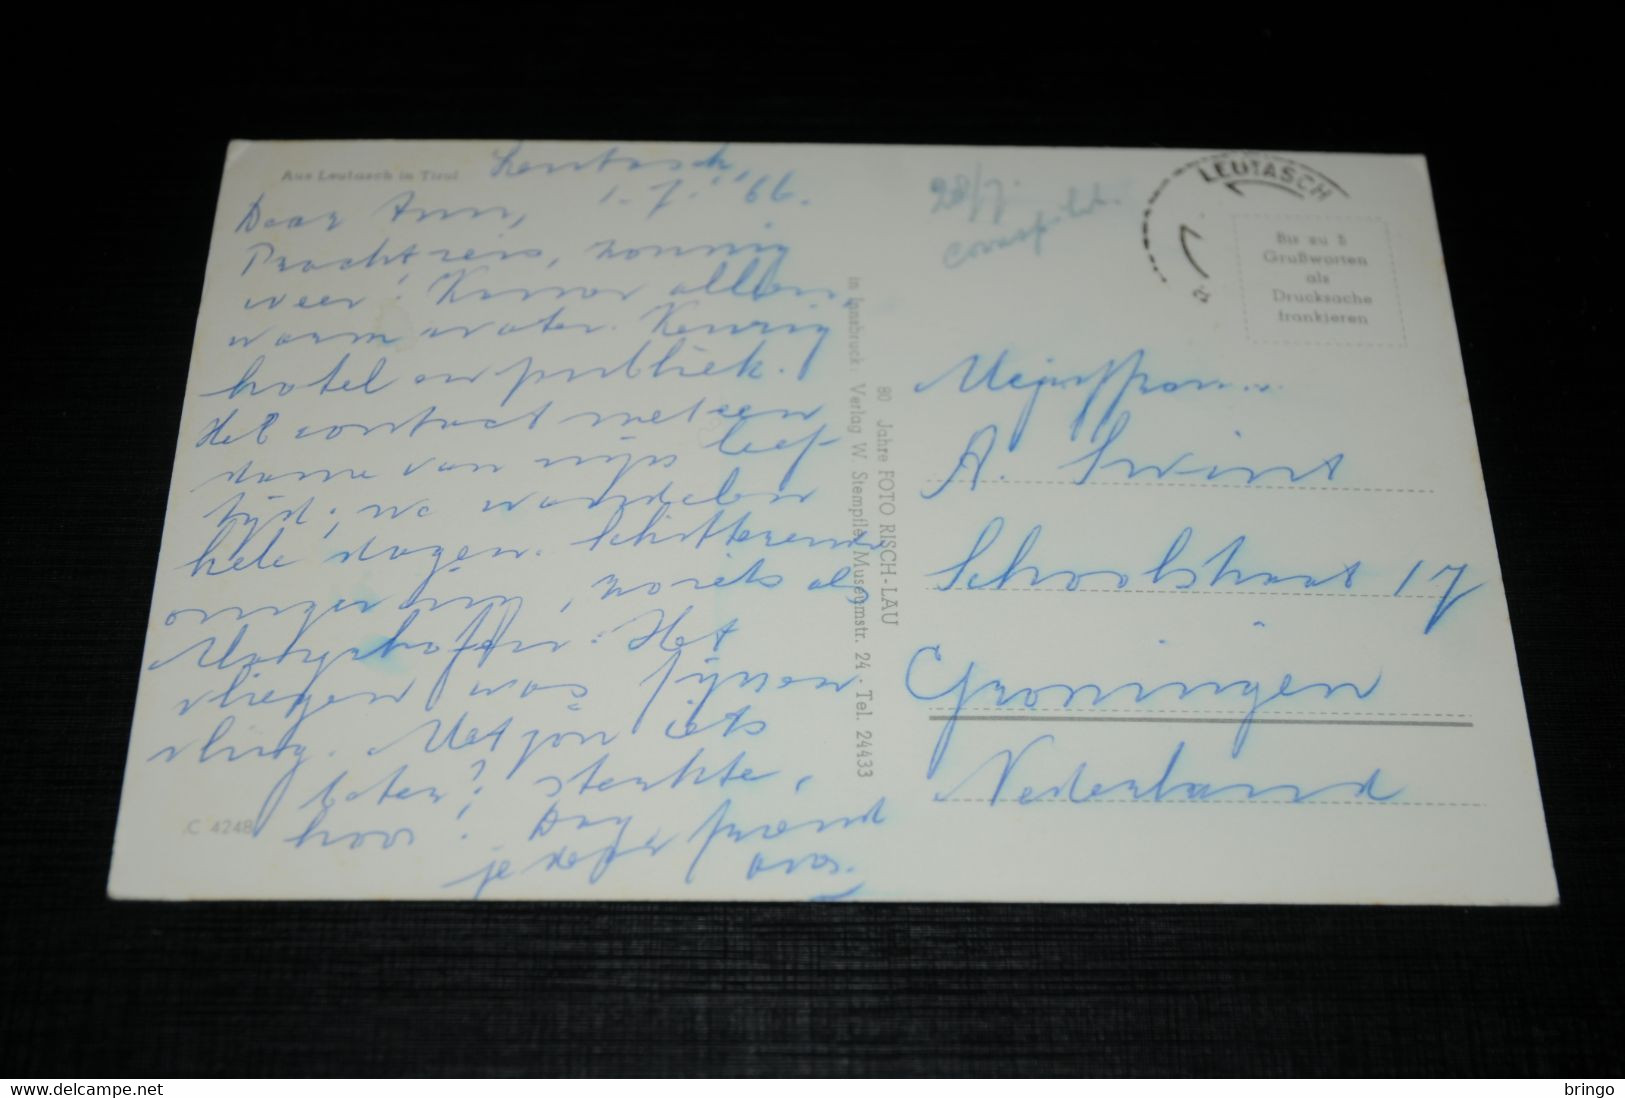 Aus Leutasch in Tirol
Leutasch,
1-7-'66.
Daar Ann,
Prachtreis, zonnig
weer! Kamer
warm water. Keurig
hotel en publiek.
Heb contact met een
dame van mijn leef-
tijd; we wandelen
hele dagen. Schitterende
omgeving, zoiets als
Het
vliegen was fijn en
vlug. Met jou iets
beter? sterkte,
hoor! Dag,
je
C 4248
80 Jahre FOTO RISCH-LAU
in Innsbruck: Verlag W. Stempfle, Museumstr. 24 · Tel. 24433
28/7.
LEUTASCH
Bis zu 5
Grußworten
als
Drucksache
frankieren
A. Swint
Schoolstraat 17
Groningen
Nederland
delcampe.net
bringo